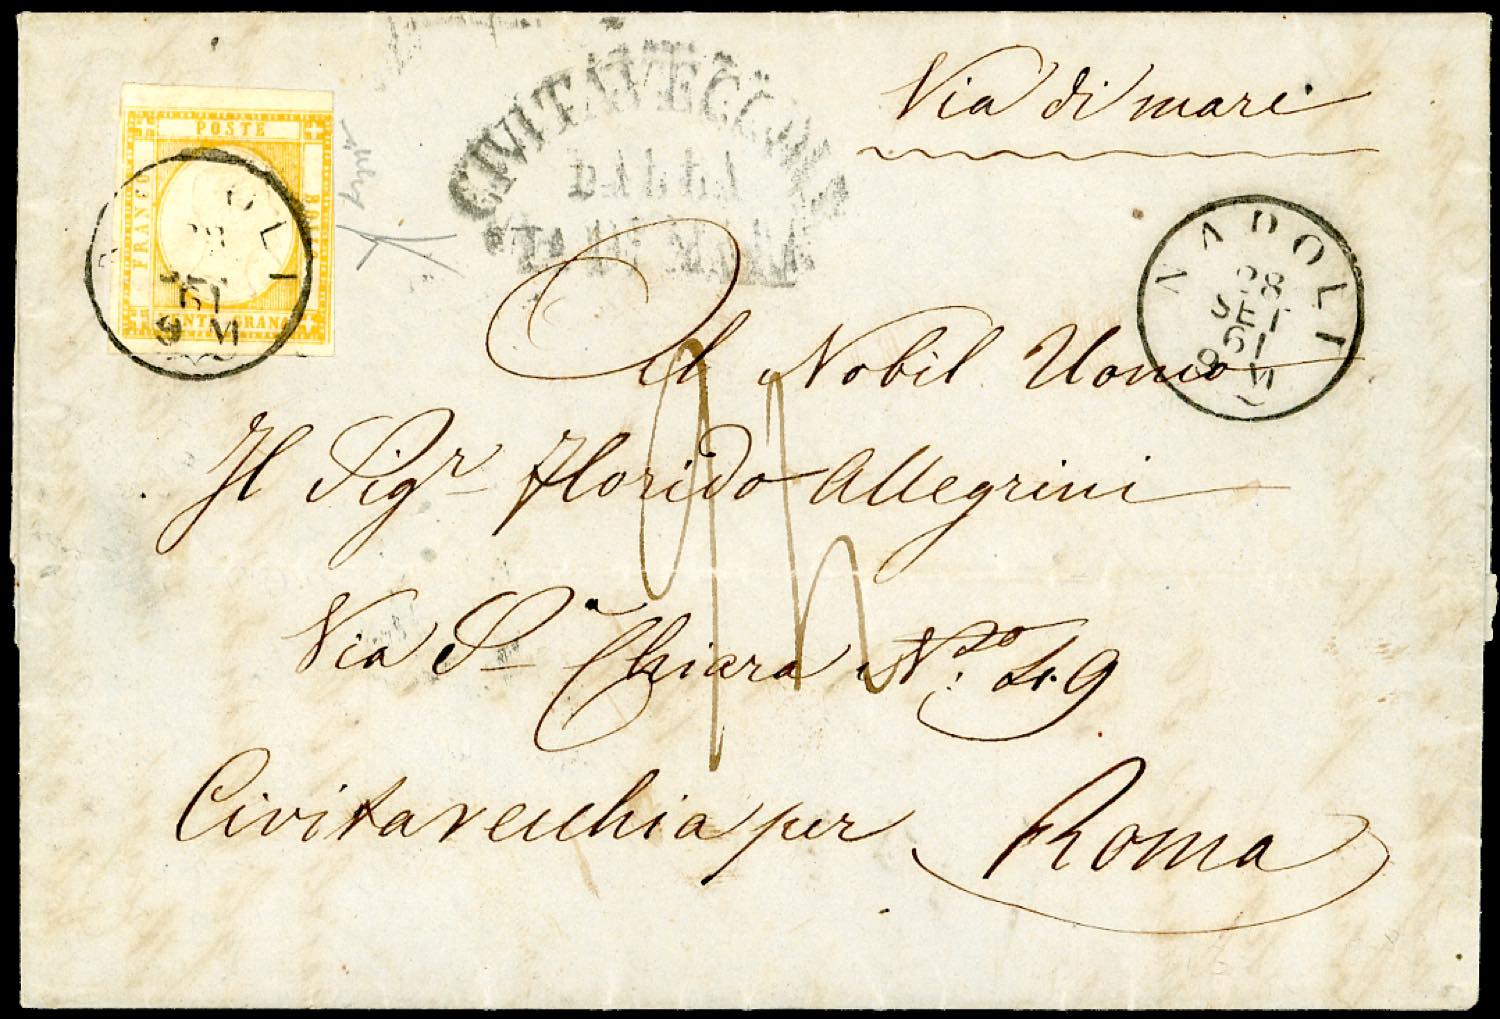 Via di mare
POSTE
FRANCO
BOLLO
OLI
SET
61
9 M
CIVITAVECCHIA
DALLA
VIA DI MARE
NAPOLI
28
SET
61
9 M
Al Nobil Uomo
Il Sigr Florido Allegrini
Via Sa Chiara No 49
Civitavecchia per Roma